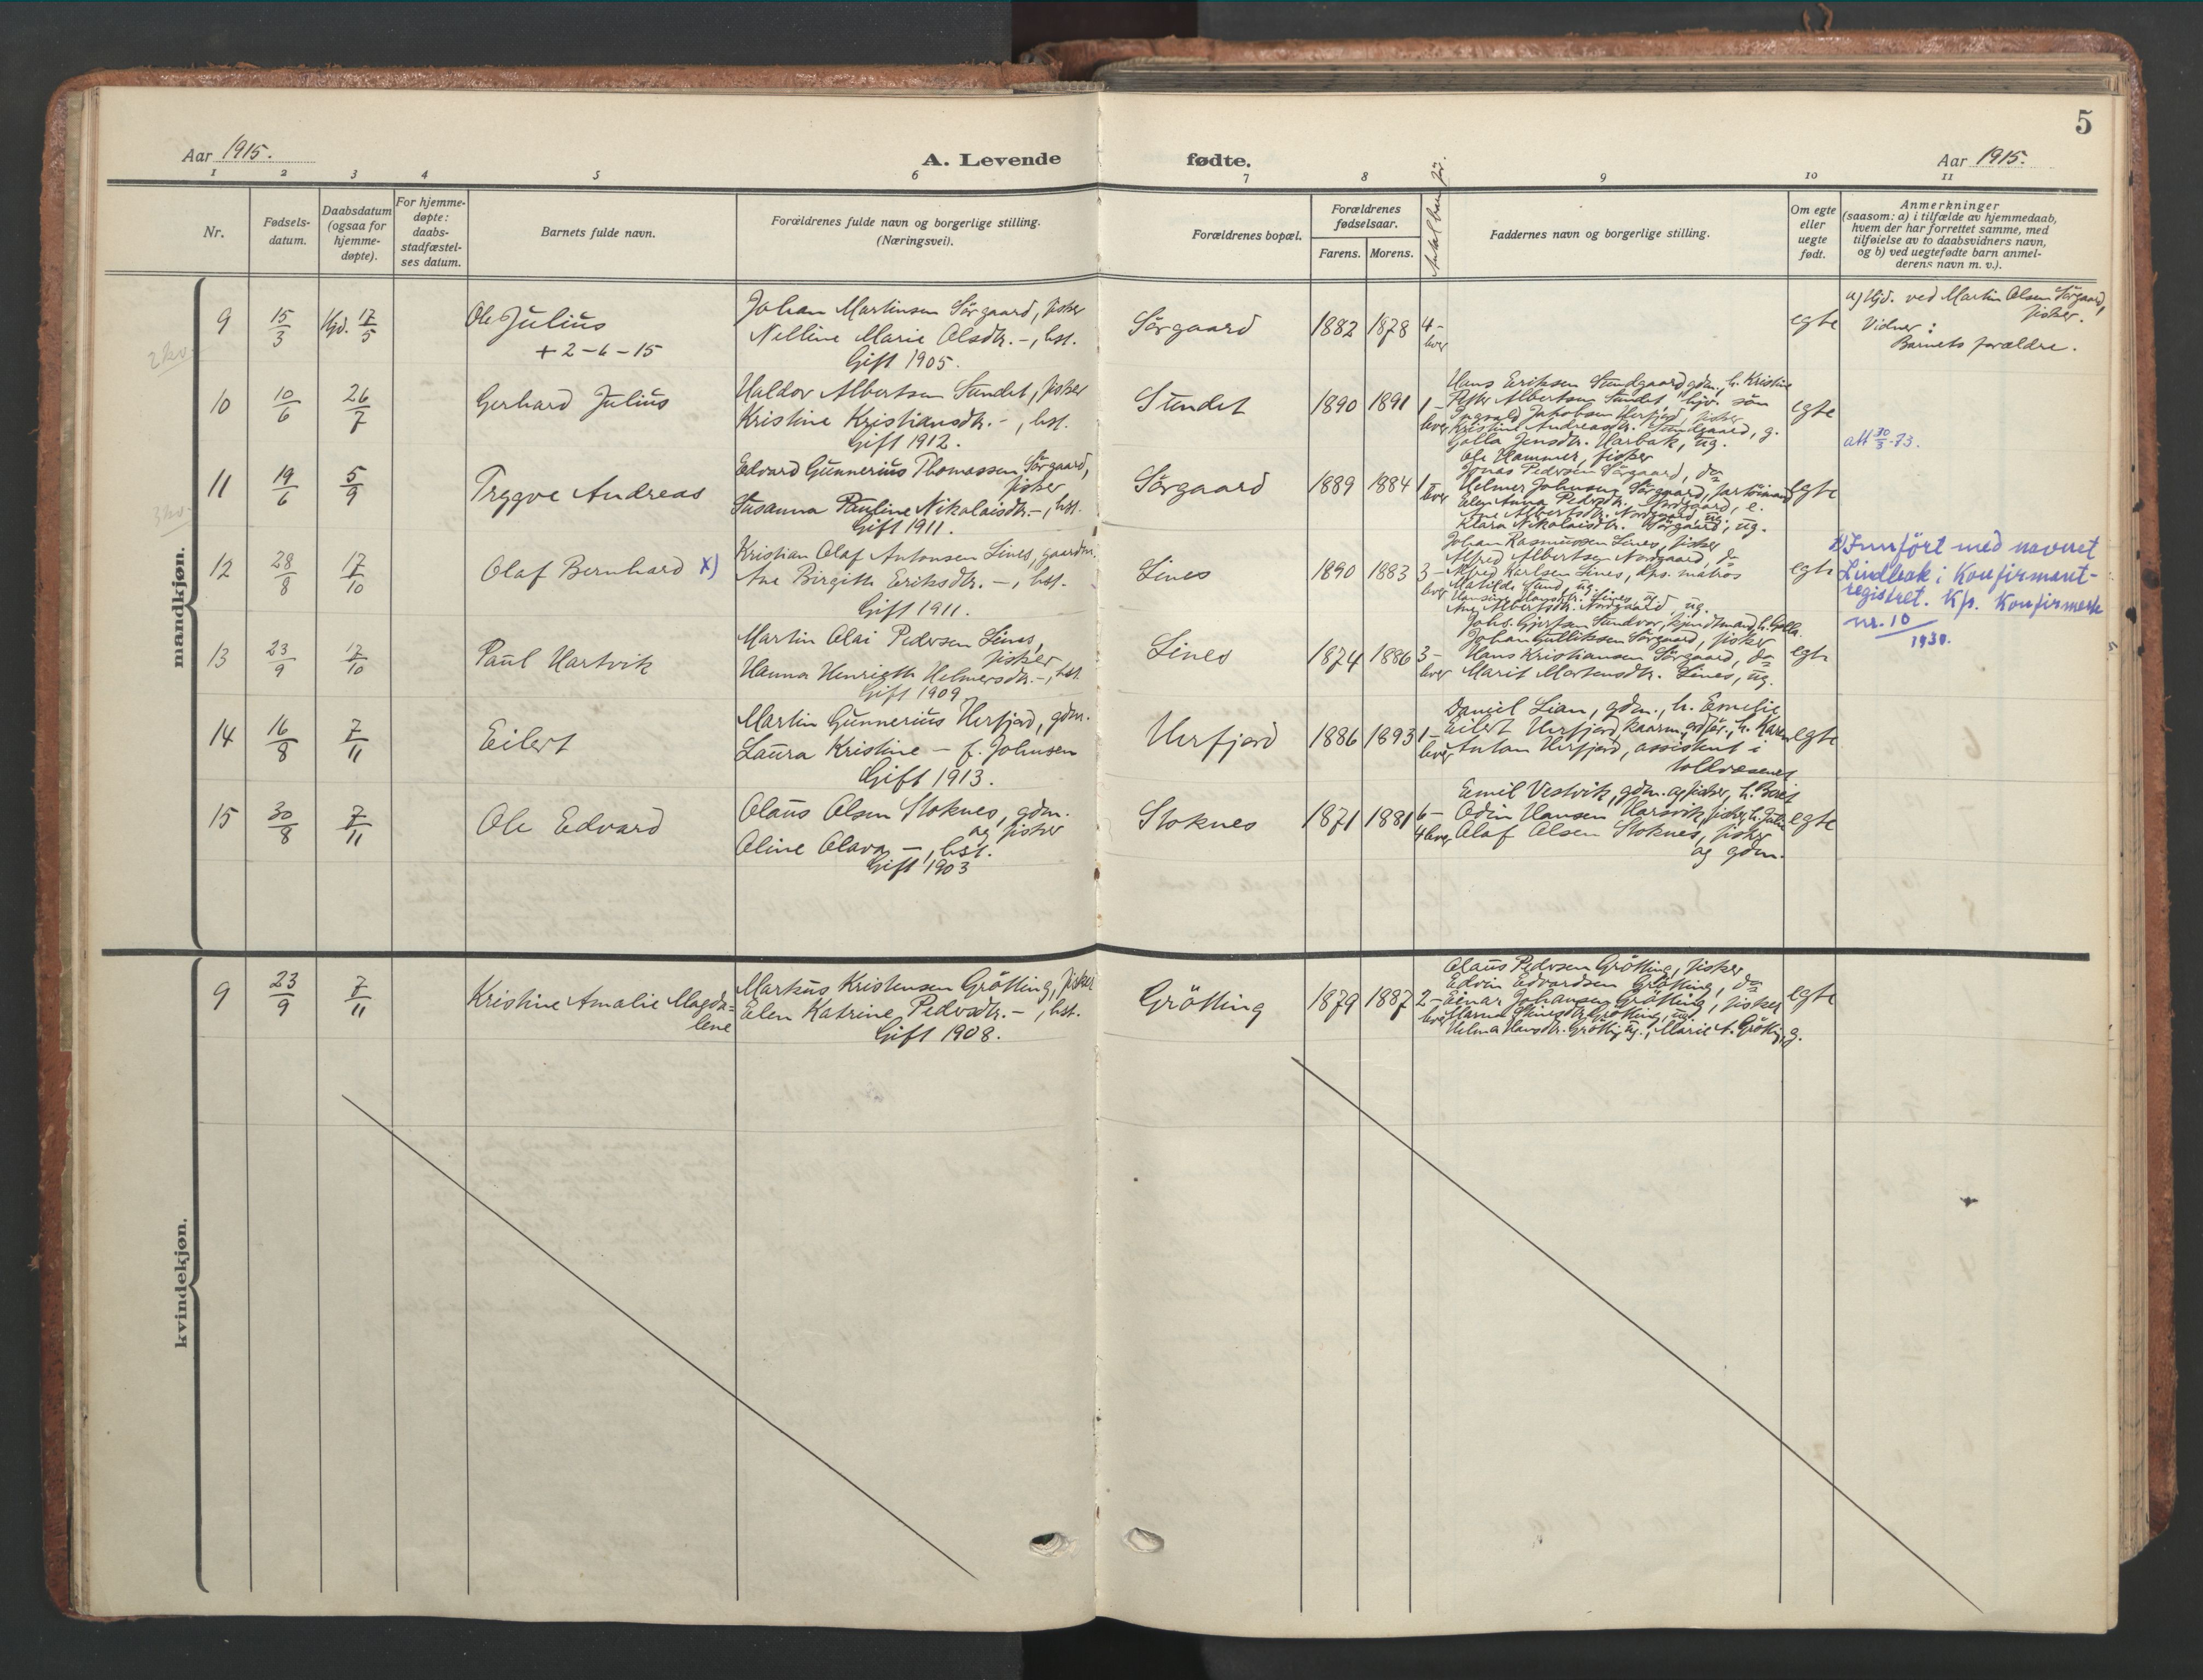 5
Aar 1915.
A. Levende fødte.
Aar 1915.
1 2 3 4 5 6 7 8 9 10 11
Nr.
Fødsels-
datum.
Daabsdatum
(ogsaa for
hjemme-
døpte).
For hjemme-
døpte:
daabs-
stadfæstel-
ses datum.
Barnets fulde navn.
Forældrenes fulde navn og borgerlige stilling.
(Næringsvei).
Forældrenes bopæl.
Forældrenes
fødselsaar.
Farens. Morens.
Antal barn før.
Faddernes navn og borgerlige stilling.
Om egte
eller
uegte
født.
Anmerkninger
(saasom: a) i tilfælde av hjemmedaab,
hvem der har forrettet samme, med
tilføielse av to daabsvidners navn,
og b) ved uegtefødte barn anmel-
derens navn m. v.).
mandkjøn.
9 15/3 Hjd. 17/5
Ole Julius
+ 2-6-15
Johan Martinsen Sörgaard, fisker
Nelline Marie Olsdtr. -, hst.
Gift 1905.
Sörgaard 1882 1878 4-
lever
egte
a) Hjd. ved Martin Olsen Sörgaard,
fisker.
Vidner:
Barnets forældre.
10 10/6 26/7
Gerhard Julius
Haldor Albertsen Sundet, fisker
Kristine Kristiansdtr. -, hst.
Gift 1912.
Sundet 1890 1891 1-
lever
Hans Eriksen Sundgaard, gdm., h. Kristine
Peter Albertsen Sundet, hjv. søn
Ingvald Jakobsen Herfjord, fisker
Kristine Andreasdtr. Sundgaard, g.
Golla Jensdtr. Harbak, ug.
egte
att 30/3-73.
11 19/6 5/9
Tryggve Andreas
Edvard Gunnerius Thomassen Sörgaard,
fisker
Susanna Pauline Nikolaisdtr. -, hst.
Gift 1911.
Sörgaard 1889 1884 1-
lever
Ole Hammer, fisker
Jonas Pedersen Sörgaard, do
Helmer Johnsen Sörgaard, fartöimand
Elen Anna Pedersdtr. Nordgaard, e.
Ane Albertsdtr. Nordgaard, ug.
Klara Nikolaisdtr. Sörgaard, ug.
egte
12 28/8 17/10
Olaf Bernhard x)
Kristian Olaf Antonsen Lines, gaardm.
Ane Birgitte Eriksdtr. -, hst.
Gift 1911.
Lines 1890 1883 3-
lever
Johan Rasmussen Lines, fisker
Alfred Albertsen Nordgaard, do
Alfred Karlsen Lines, dps. matros
Matilde Sund, ug.
Hansine Hansdtr. Lines, ug.
Ane Albertsdtr. Nordgaard, ug.
egte
x) Innført med navnet
Lindbak i Konfirmant-
registret. Kfr. Konfirmerte
nr. 10/1930.
13 23/9 17/10
Paul Hartvik
Martin Olai Pedersen Lines,
fisker
Hanna Henrigtte Helmersdtr. -, hst.
Gift 1909
Lines 1874 1886 3-
lever
Johs. Gjertsen Sundvor, handelsmand, h. Golla.
Johan Gulliksen Sörgaard, fisker
Hans Kristiansen Sörgaard, do
Marit Mortensdtr. Lines, ug.
egte
14 16/8 7/11
Eilert
Martin Gunnerius Herfjord, gdm.
Laura Kristine - f. Johnsen
Gift 1913.
Herfjord 1886 1893 1-
lever
Daniel Lian, gdm., h. Emelie
Eilert Herfjord, kaarm., h. Karen
Anton Herfjord, assistent i
toldvæsenet
egte
15 30/8 7/11
Ole Edvard
Olaus Olsen Stoknes, gdm.
og fisker
Oline Olava -, hst.
Gift 1903
Stoknes 1871 1881 6-
4 lever
Emil Vestvik, gdm. og fisker, h. Berit
Odin Hansen Harsvik, fisker, h. Julie
Olaf Olsen Stoknes, fisker
og gdm.
egte
kvindekjøn.
9 23/9 7/11
Kristine Amalie Magda=
lene
Markus Kristensen Grötting, fisker
Elen Katrine Pedersdtr. -, hst.
Gift 1908.
Grötting 1879 1887 2-
lever
Olaus Pedersen Grötting, fisker
Edvin Edvardsen Grötting, do
Einar Johansen Grötting, fisker
Grötting, ug.
Helma Hansdtr. Grötting, ug., Marie A. Grötting, g.
egte